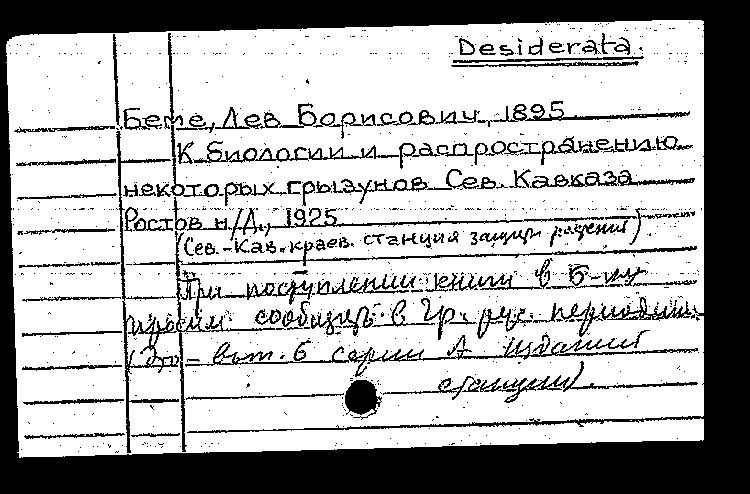 Desiderata.
Бете, Лев Борисович, 1895
К биологии и распространению
некоторых грызунов Сев. Кавказа
Ростов н/Д., 1925
(Сев.-Кав. краев. станция защиты растений)
При поступлении книги в Б-ку
просим сообщить в Гр. рус. периодики
(Это - вып. 6 серии А изданий
станции).